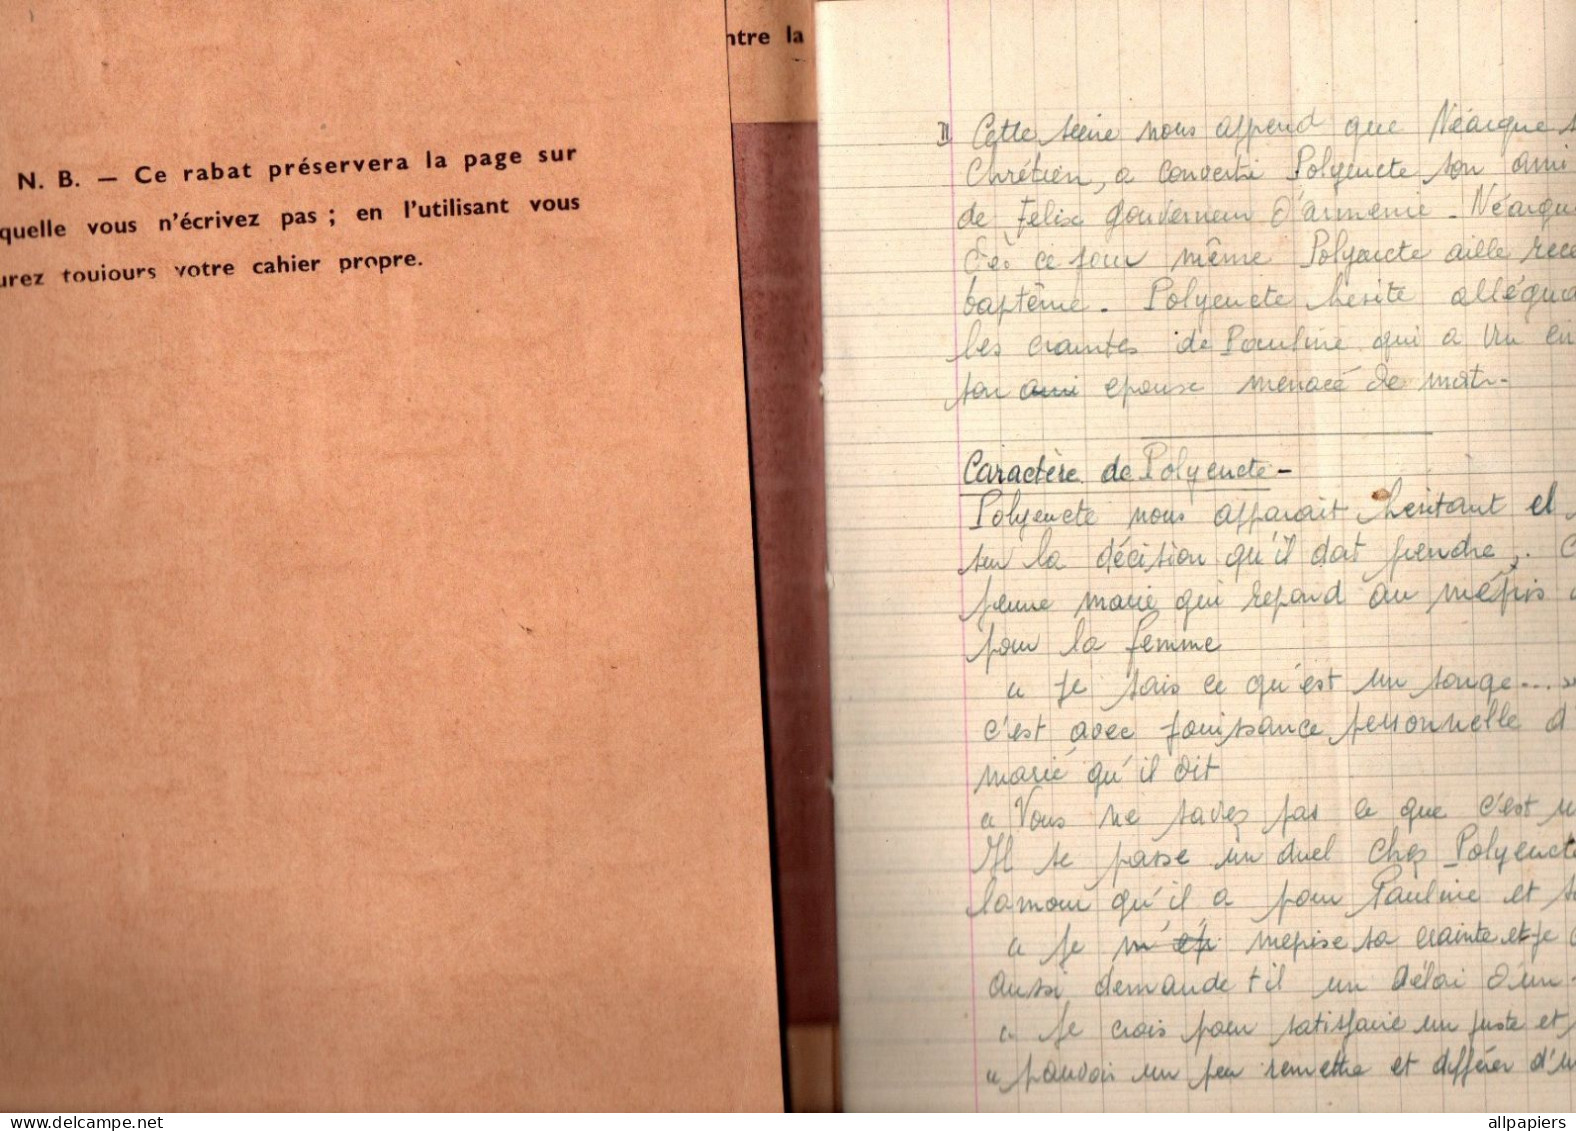 ntre la
N. B. — Ce rabat préservera la page sur
quelle vous n'écrivez pas ; en l'utilisant vous
urez toujours votre cahier propre.
II Cette scène nous apprend que Néarque
Chrétien, a converti Polyeucte son ami
de Felix gouverneur d'armenie - Néarque
ce jour même Polyeucte aille rece
baptême. Polyeucte hesite allégua
les craintes de Pauline qui a vu en
son ami epoux menacé de mort.
Caractère de Polyeucte -
Polyeucte nous apparait hesitant et
sur la décision qu'il doit prendre, . C
jeune marié qui repond au mépris
pour la femme
" Je sais ce qu'est un songe...
c'est avec jouissance personnelle d'
marié qu'il dit
" Vous ne savez pas ce que c'est
Il se passe un duel chez Polyeucte
lamour qu'il a pour Pauline et
" Je mepise sa crainte et je
aussi demande til un délai d'un
" Je crois pour satisfaire un juste et
" pouvoir un peu remettre et différer d'u
allpapiers